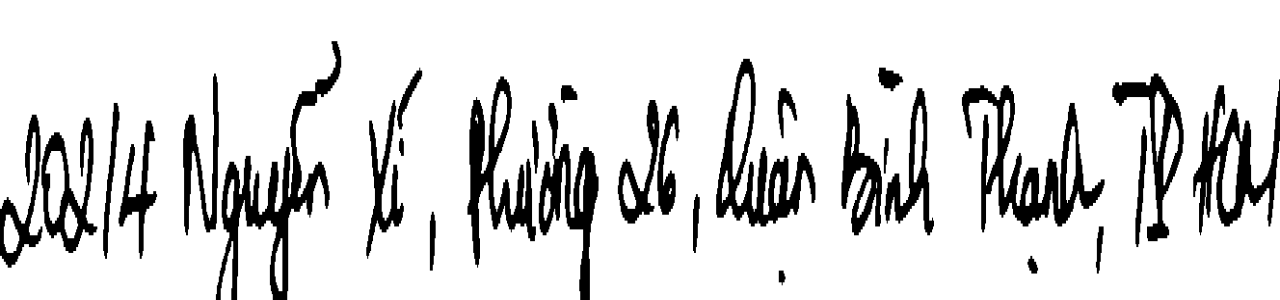 202/4 Nguyễn Xí, Phường 26, Quận Bình Thạnh, TP HCM